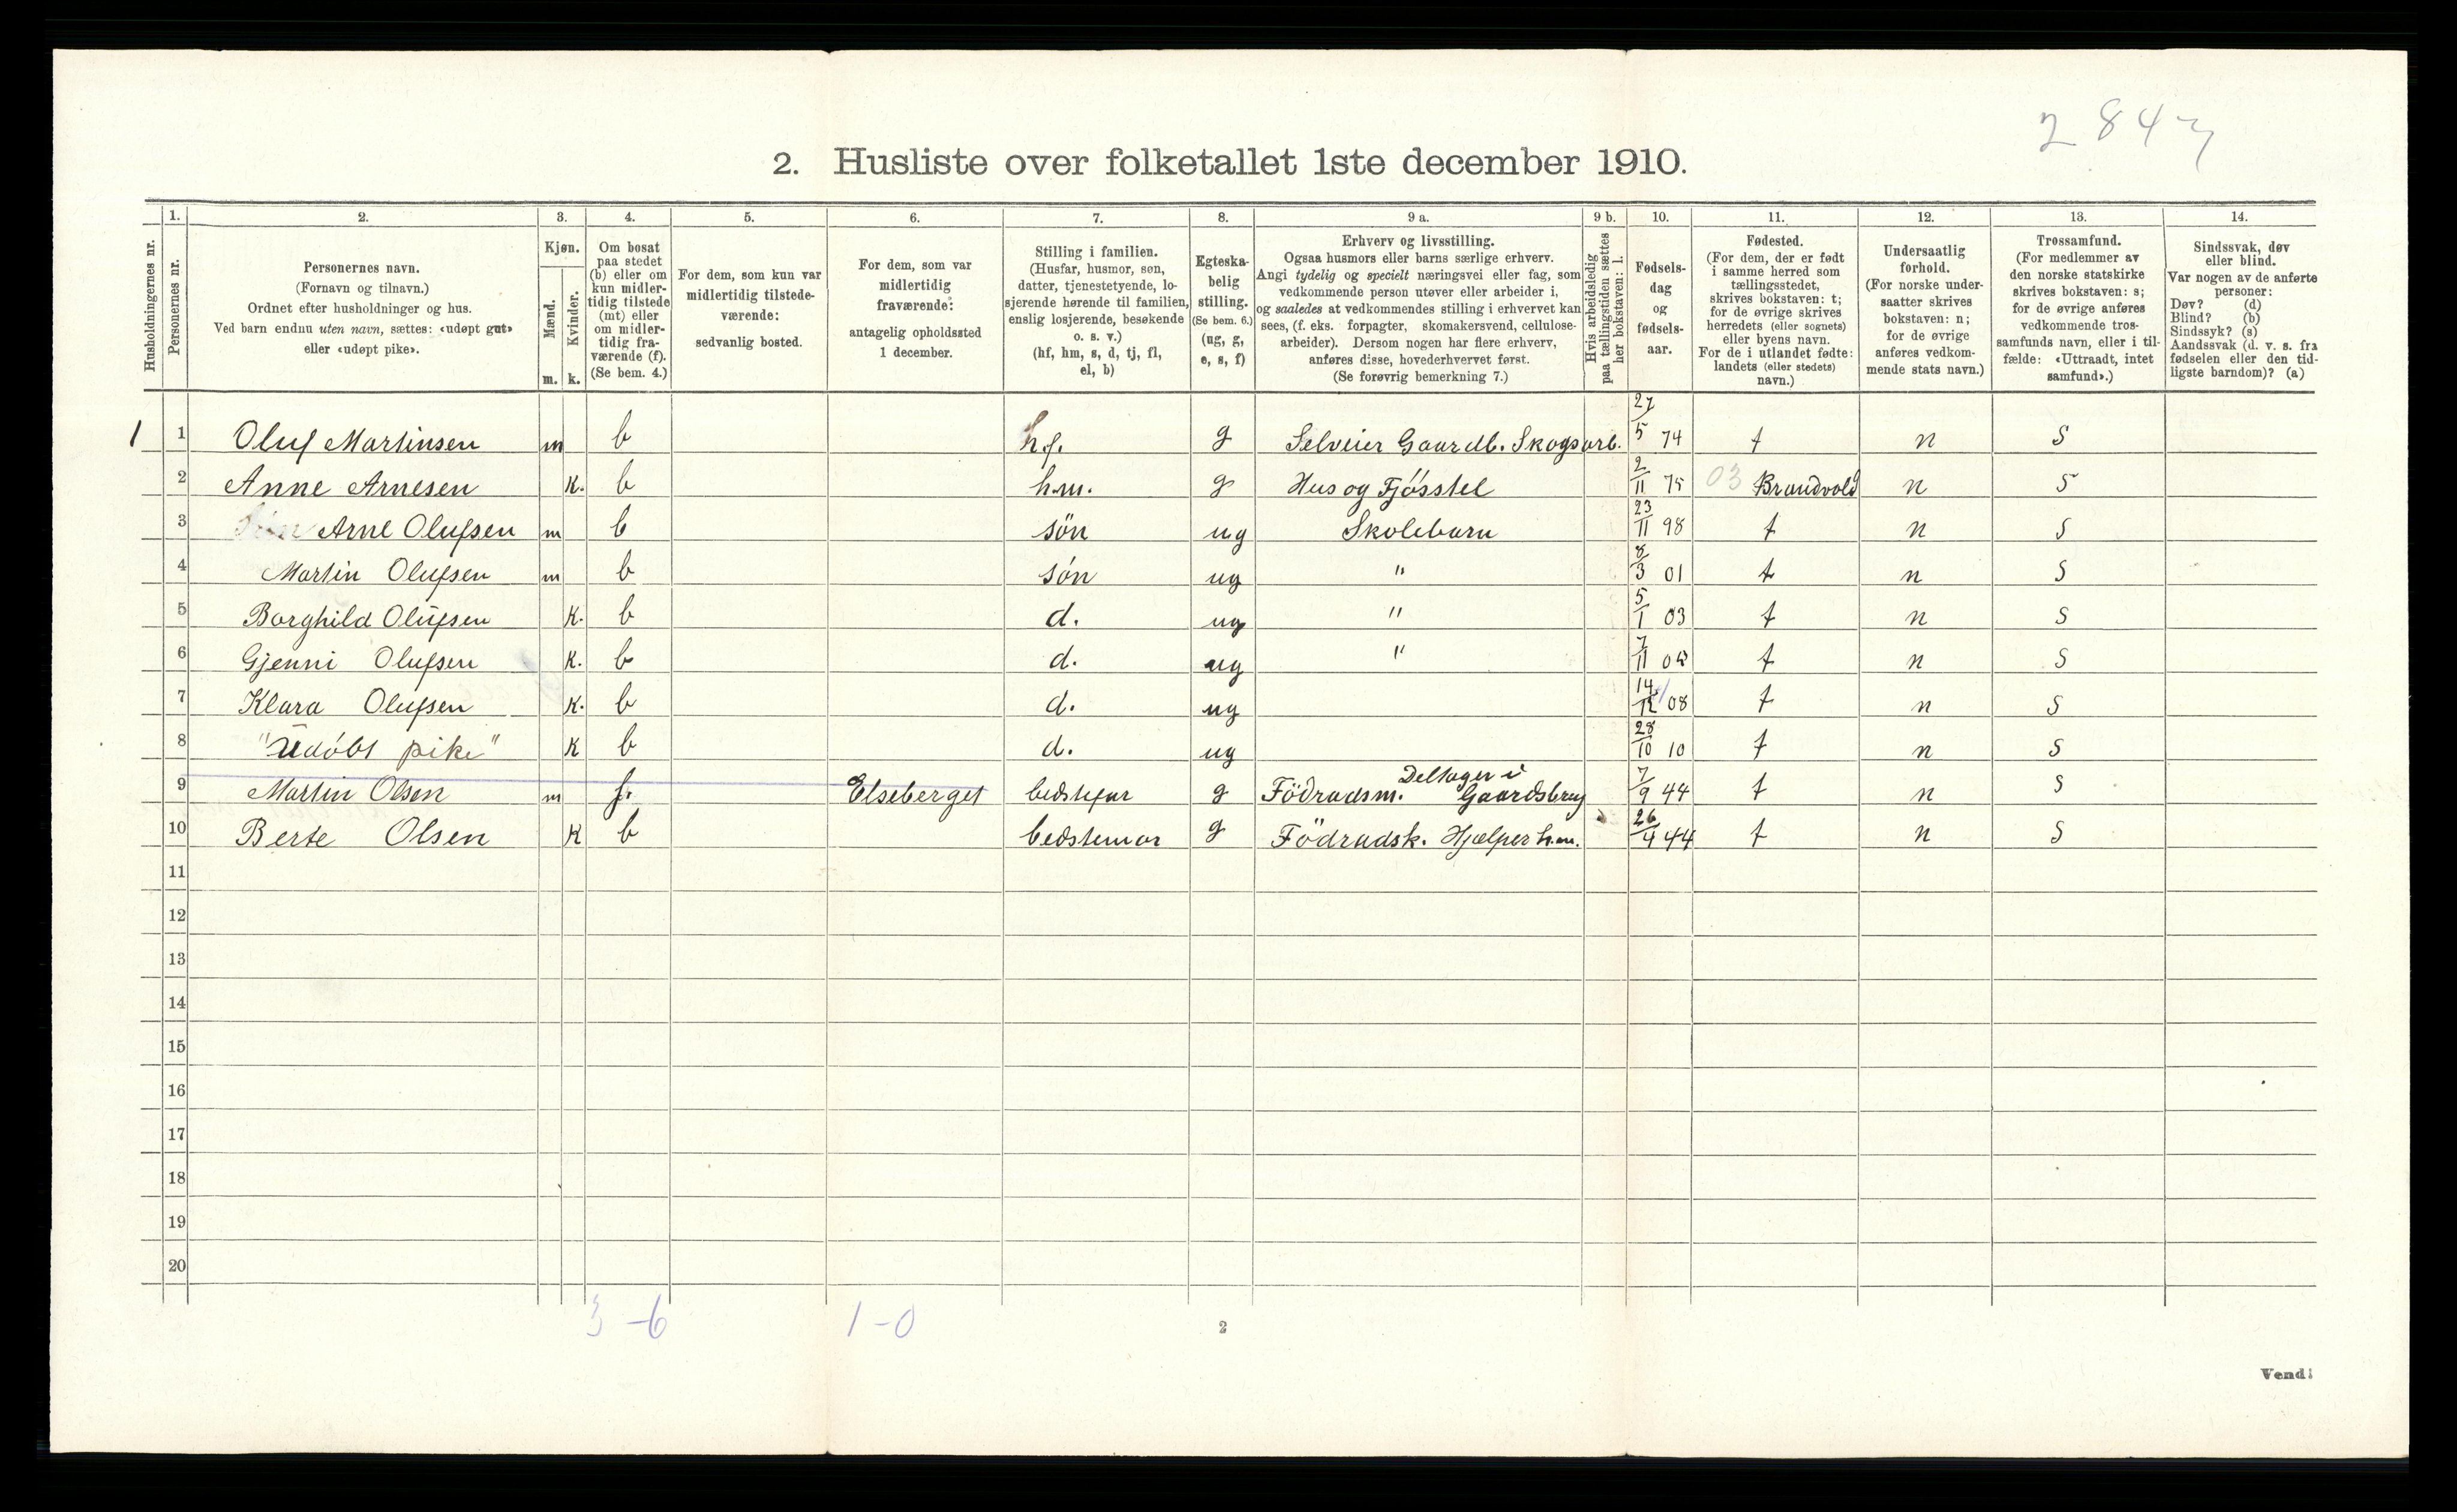 2 843
2. Husliste over folketallet 1ste december 1910.
1. 2. 3. 4. 5. 6. 7. 8. 9 a. 9 b. 10. 11. 12. 13. 14.
Husholdningernes nr.
Personernes nr.
Personernes navn.
(Fornavn og tilnavn.)
Ordnet efter husholdninger og hus.
Ved barn endnu uten navn, sættes: «udøpt gut»
eller «udøpt pike».
Kjøn.
Mænd.
Kvinder.
m. k.
Om bosat
paa stedet
(b) eller om
kun midler-
tidig tilstede
(mt) eller
om midler-
tidig fra-
værende (f).
(Se bem. 4.)
For dem, som kun var
midlertidig tilstede-
værende:
sedvanlig bosted.
For dem, som var
midlertidig
fraværende:
antagelig opholdssted
1 december.
Stilling i familien.
(Husfar, husmor, søn,
datter, tjenestetyende, lo-
sjerende hørende til familien,
enslig losjerende, besøkende
o. s. v.)
(hf, hm, s, d, tj, fl,
el, b)
Egteska-
belig
stilling.
(Se bem. 6.)
(ug, g,
e, s, f)
Erhverv og livsstilling.
Ogsaa husmors eller barns særlige erhverv.
Angi tydelig og specielt næringsvei eller fag, som
vedkommende person utøver eller arbeider i,
og saaledes at vedkommendes stilling i erhvervet kan
sees, (f. eks. forpagter, skomakersvend, cellulose-
arbeider). Dersom nogen har flere erhverv,
anføres disse, hovederhvervet først.
(Se forøvrig bemerkning 7.)
Hvis arbeidsledig
paa tællingstiden sættes
her bokstaven: l.
Fødsels-
dag
og
fødsels-
aar.
Fødested.
(For dem, der er født
i samme herred som
tællingsstedet,
skrives bokstaven: t;
for de øvrige skrives
herredets (eller sognets)
eller byens navn.
For de i utlandet fødte:
landets (eller stedets)
navn.)
Undersaatlig
forhold.
(For norske under-
saatter skrives
bokstaven: n;
for de øvrige
anføres vedkom-
mende stats navn.)
Trossamfund.
(For medlemmer av
den norske statskirke
skrives bokstaven: s;
for de øvrige anføres
vedkommende tros-
samfunds navn, eller i til-
fælde: «Uttraadt, intet
samfund».)
Sindssvak, døv
eller blind.
Var nogen av de anførte
personer:
Døv? (d)
Blind? (b)
Sindssyk? (s)
Aandssvak (d. v. s. fra
fødselen eller den tid-
ligste barndom)? (a)
1 1 Oluf Martinsen m b hf. g Selveier Gaardb. Skogsarb. 27/5 74 t n S
2 Anne Arnesen K. b h.m. g Hus og Fjösstel 2/11 75 03 Brandvold n S
3 Arne Olufsen m b sön ug Skolebarn 23/11 98 t n S
4 Martin Olufsen m b sön ug " 8/3 01 t n S
5 Borghild Olufsen K. b d. ug " 5/1 03 t n S
6 Gjenni Olufsen K. b d. ug " 7/11 t n S
7 Klara Olufsen K. b d. ug 14/12 08 t n S
8 "Udöbt pike" K b d. ug 28/10 10 t n S
9 Martin Olsen m f. Elseberget bedstefar g Födraadsm. Deltager i Gaardsbrug 7/9 44 t n S
10 Berte Olsen K b bedstemor g Födraadsk. Hjælper h.m. 26/4 44 t n S
11
12
13
14
15
16
17
18
19
20
3 - 6 1 - 0
2
Vend!